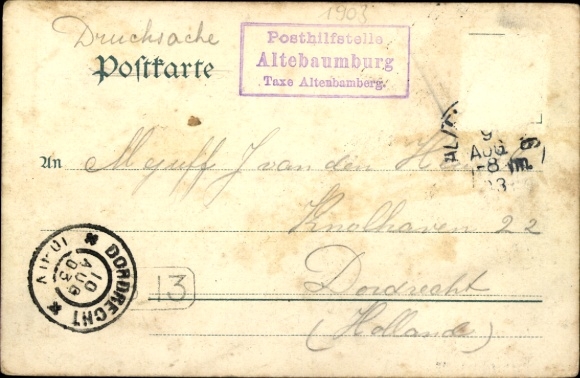 1903
Drucksache
Postkarte
Posthilfstelle
Altebaumburg
Taxe Altenbamberg.
9
AUG
-8
03
An Mejuff J van den
Knolhaven 22
Dordrecht
(Hollande)
DORDRECHT
10
AUG
03
13